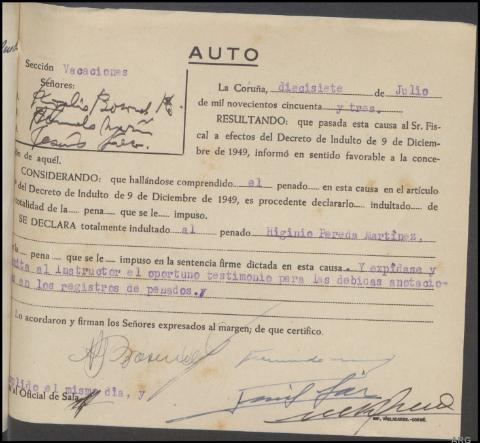 AUTO
Sección Vacaciones
Señores:
La Coruña, diecisiete de Julio
de mil novecientos cincuenta y tres.
RESULTANDO: que pasada esta causa al Sr. Fis-
cal a efectos del Decreto de Indulto de 9 de Diciem-
bre de 1949, informó en sentido favorable a la conce-
ón de aquél.
CONSIDERANDO: que hallándose comprendido el penado en esta causa en el artículo
del Decreto de Indulto de 9 de Diciembre de 1949, es procedente declararlo indultado de
totalidad de la pena que se le impuso.
SE DECLARA totalmente indultado al penado Higinio Pereda Martínez,
la pena que se le impuso en la sentencia firme dictada en esta causa. Y expídase y
ita al Instructor el oportuno testimonio para las debidas anotacio-
s en los registros de penados.
Lo acordaron y firman los Señores expresados al margen; de que certifico.
lido el mismo día, y
al Oficial de Sala
ARG